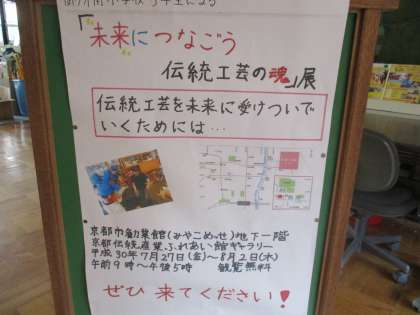 「未来につなごう
伝統工芸の魂」展
伝統工芸を未来に受けついで
いくためには…
京都市勧業館(みやこめっせ)地下一階
京都伝統産業ふれあい館ギャラリー
平成30年7月27日(金)～8月2日(木)
午前9時～午後5時 観覧無料
ぜひ来てください!